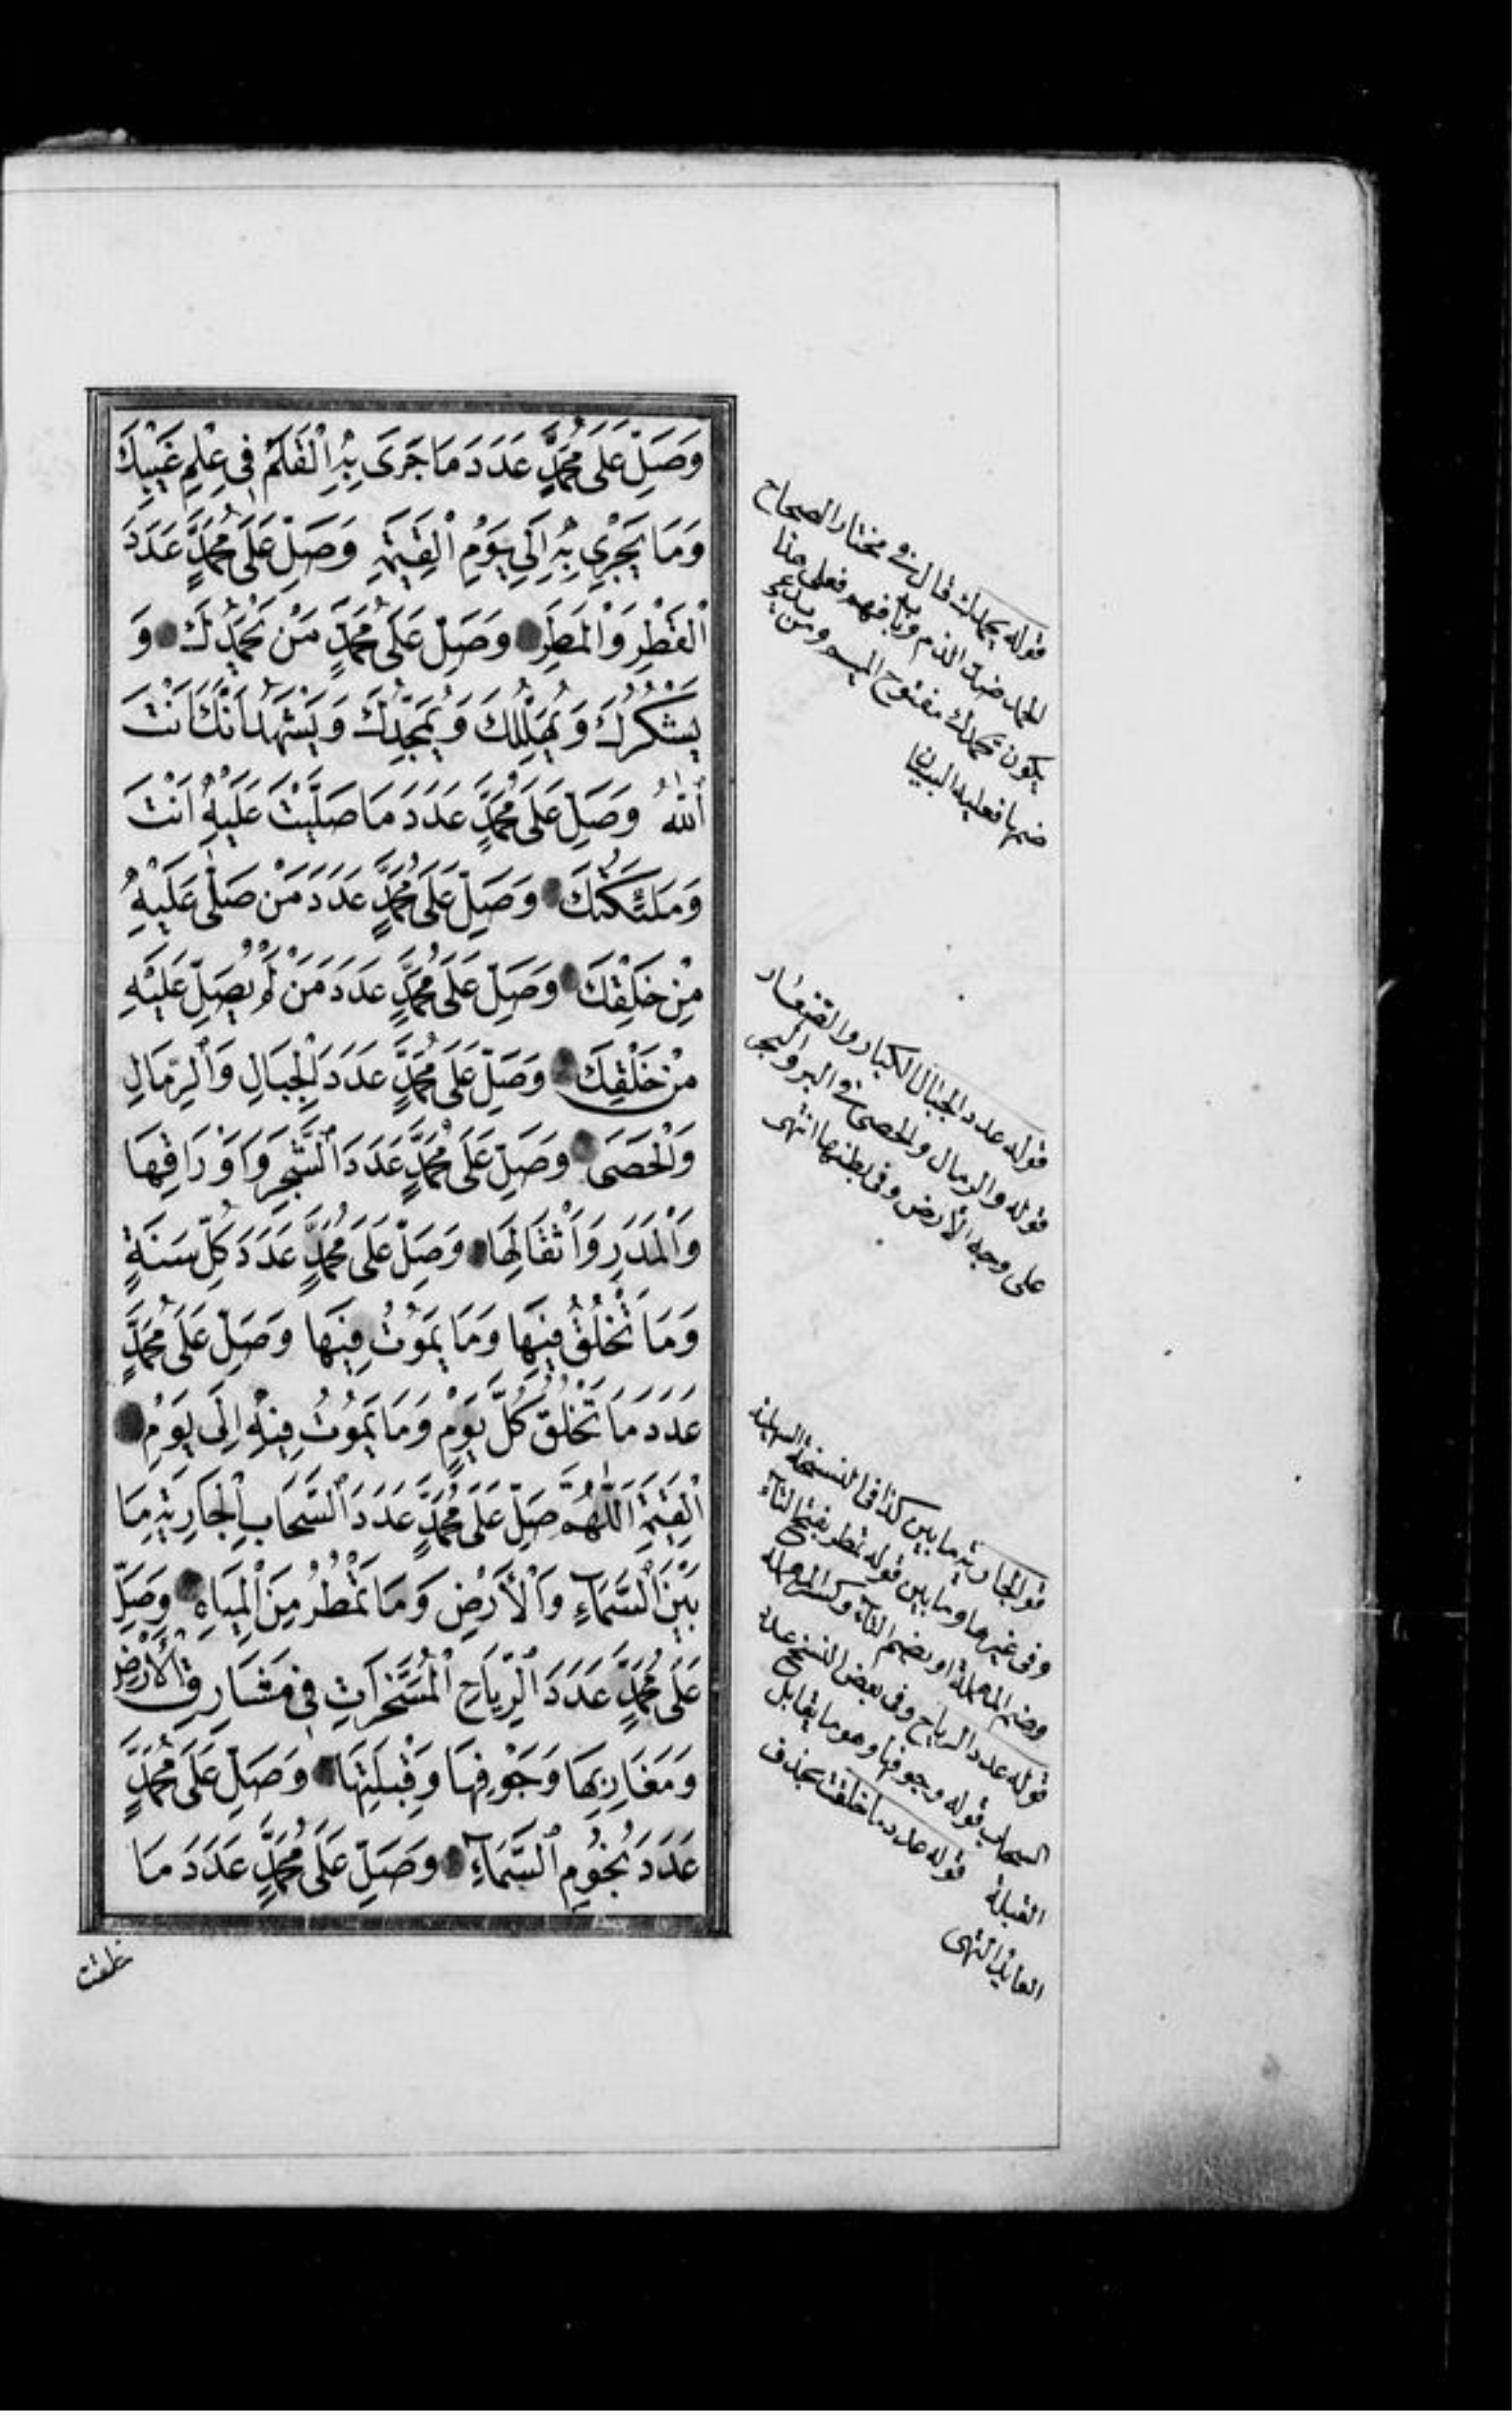 وَصَلِّ عَلَى مُحَمَّدٍ عَدَدَ مَا جَرَى بِهِ الْقَلَمُ فِي عِلْمِ غَيْبِكَ
وَمَا يَجْرِي بِهِ اِلَى يَوْمِ الْقِيٰمَةِ وَصَلِّ عَلَى مُحَمَّدٍ عَدَدَ
الْقَطْرِ وَالْمَطَرِ وَصَلِّ عَلَى مُحَمَّدٍ مَنْ يَحْمَدُكَ وَ
يَشْكُرُكَ وَيُهَلِّلُكَ وَيُمَجِّدُكَ وَيَشْهَدُ اَنَّكَ اَنْتَ
اللهُ وَصَلِّ عَلَى مُحَمَّدٍ عَدَدَ مَا صَلَّيْتَ عَلَيْهِ اَنْتَ
وَمَلٰئِكَتُكَ وَصَلِّ عَلَى مُحَمَّدٍ عَدَدَ مَنْ صَلّٰى عَلَيْهِ
مِنْ خَلْقِكَ وَصَلِّ عَلَى مُحَمَّدٍ عَدَدَ مَنْ لَمْ يُصَلِّ عَلَيْهِ
مِنْ خَلْقِكَ وَصَلِّ عَلَى مُحَمَّدٍ عَدَدَ الْجِبَالِ وَالرِّمَالِ
وَالْحَصَى وَصَلِّ عَلَى مُحَمَّدٍ عَدَدَ الشَّجَرِ وَاَوْرَاقِهَا
وَالْمَدَرِ وَاَثْقَالِهَا وَصَلِّ عَلَى مُحَمَّدٍ عَدَدَ كُلِّ سَنَةٍ
وَمَا تَخْلُقُ فِيهَا وَمَا يَمُوتُ فِيهَا وَصَلِّ عَلَى مُحَمَّدٍ
عَدَدَ مَا تَخْلُقُ كُلَّ يَوْمٍ وَمَا يَمُوتُ فِيهِ اِلَى يَوْمِ
الْقِيٰمَةِ اَللّٰهُمَّ صَلِّ عَلَى مُحَمَّدٍ عَدَدَ السَّحَابِ الْجَارِيَةِ مَا
بَيْنَ السَّمَاءِ وَالْأَرْضِ وَمَا تَمْطُرُ مِنَ الْمِيَاهِ وَصَلِّ
عَلَى مُحَمَّدٍ عَدَدَ الرِّيَاحِ الْمُسَخَّرَاتِ فِي مَشَارِقِ الْأَرْضِ
وَمَغَارِبِهَا وَجَوْفِهَا وَقِبْلَتِهَا وَصَلِّ عَلَى مُحَمَّدٍ
عَدَدَ نُجُومِ السَّمَاءِ وَصَلِّ عَلَى مُحَمَّدٍ عَدَدَ مَا
خلقت
قوله يحمدك قال في مختار الصحاح
الحمد ضد الذم وبابه فهم فعلى هذا
يكون يحمدك مفتوح الميم ومن
ضمها فعليه البيان
قوله عدد الجبال الكبار والصغار
قوله والرمال والحصى في البر والبحر
على وجه الأرض وفي بطنها انتهى
قوله الجارية ما بين كذا في النسخة السهلية
وفي غيرها وما بين قوله تمطر بفتح التاء
وضم المهملة او بضم التاء وكسر المهملة
قوله عدد الرياح وفي بعض النسخ عدد
السحاب قوله وجوفها وهو ما يقابل
القبلة قوله عدد ما خلقت بحذف
العايد انتهى